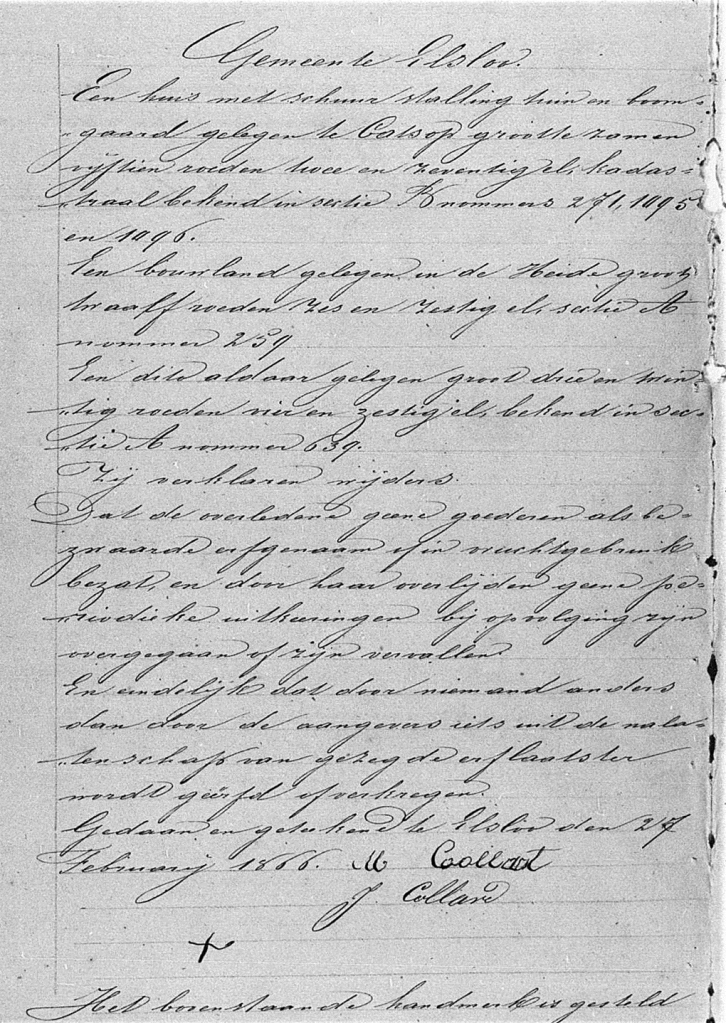 Gemeente Elsloo.
Een huis met schuur stalling tuin en boom-
„gaard gelegen te Catsop grootte zamen
vijftien roeden twee en zeventig el, kadas-
„traal bekend in sectie B nommers 271, 1095
en 1096.
Een bouwland gelegen in de Heide groot
twaalf roeden zes en zestig el, sectie A
nommer 259
Een dito aldaar gelegen groot drie en twin-
„tig roeden vier en zestig el, bekend in sec-
„tie A nommer 639.
Zij verklaren wijders.
Dat de overledene geene goederen als be-
zwaarde erfgenaam of in vruchtgebruik
bezat, en door haar overlijden geene pe-
„riodieke uitkeeringen bij opvolging zijn
overgegaan of zijn vervallen.
En eindelijk dat door niemand anders
dan door de aangevers iets uit de nala-
„tenschap van gezegde erflaatster
wordt geërfd of verkregen.
Gedaan en geteekend te Elsloo den 27
Februarij 1866. M Collart
J. Collard
X
Het bovenstaande handmerk is gesteld